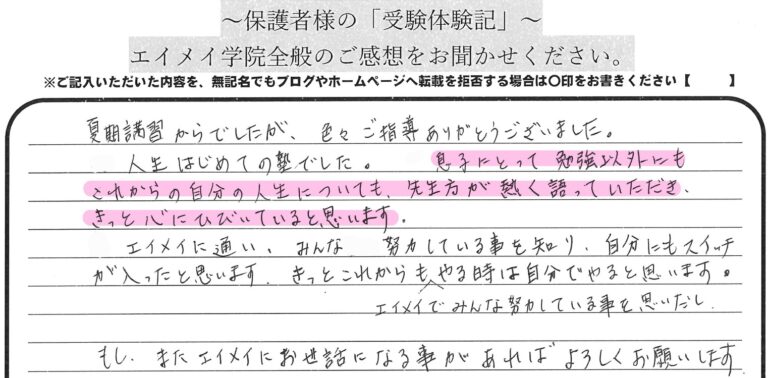 ～保護者様の「受験体験記」～
エイメイ学院全般のご感想をお聞かせください。
※ご記入いただいた内容を、無記名でもブログやホームページへ転載を拒否する場合は〇印をお書きください【　　】
夏期講習からでしたが、色々ご指導ありがとうございました。
人生はじめての塾でした。　息子にとって勉強以外にも
これからの自分の人生についても、先生方が熱く語っていただき、
きっと心にひびいていると思います。
エイメイに通い、みんな、努力している事を知り、自分にもスイッチ
が入ったと思います。きっとこれからもやる時は自分でやると思います。
エイメイでみんな努力している事を思いだし
もし、またエイメイにお世話になる事があればよろしくお願いします